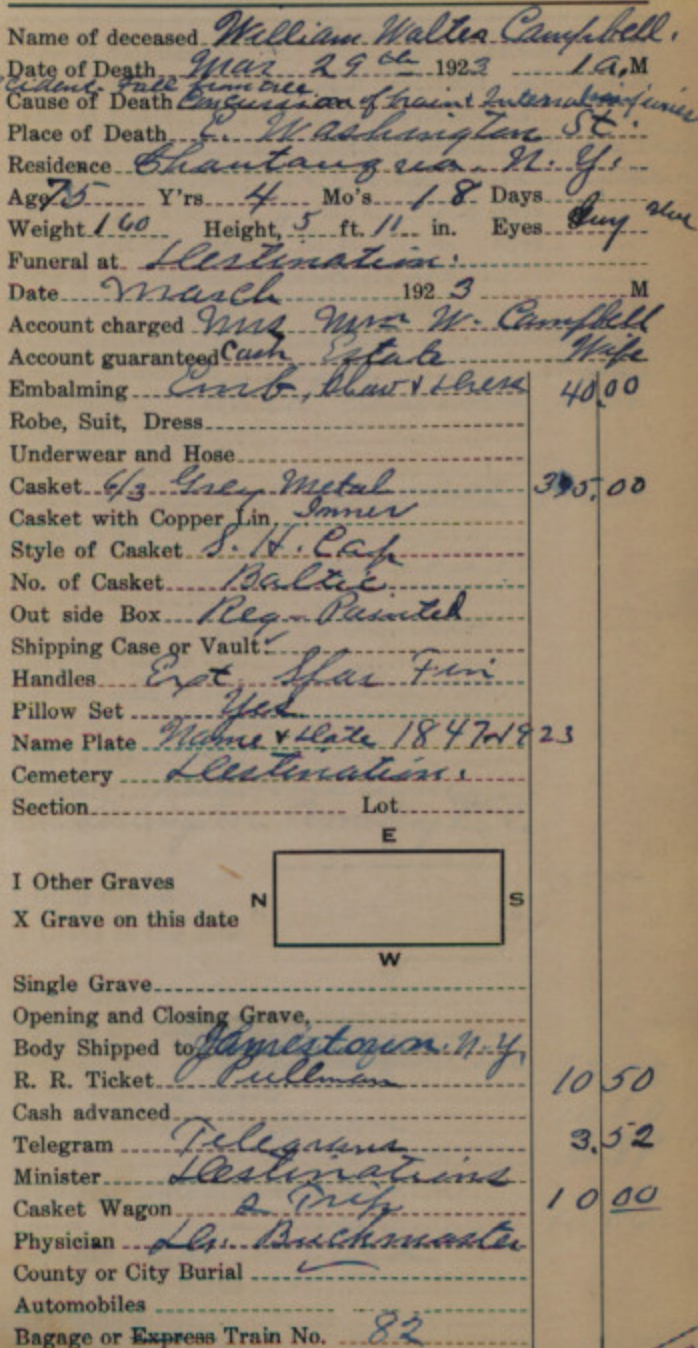 Name of deceased William Walter Campbell.
Date of Death Mar 29th 1923 1 a. M
cident - Fall from tree
Cause of Death Concussion of brain & Internal injuries
Place of Death E. Washington St.
Residence Chautauqua N. Y.
Age 75 Y'rs 4 Mo's 18 Days
Weight 160 Height, 5 ft. 11 in. Eyes blue
Funeral at Destination.
Date March 1923 M
Account charged Mrs Wm W. Campbell
Account guaranteed Cash Estate Wife
Embalming Emb, Shave & dress 40.00
Robe, Suit, Dress
Underwear and Hose
Casket 6/3 Grey Metal 395.00
Casket with Copper Lin. Inner
Style of Casket S. H. Cap
No. of Casket Baltic
Out side Box Reg - Painted
Shipping Case or Vault
Handles Ext Fin
Pillow Set Yes
Name Plate Name & Date 1847-1923
Cemetery Destination.
Section Lot
E
I Other Graves
N S
X Grave on this date
W
Single Grave
Opening and Closing Grave,
Body Shipped to Jamestown. N. Y.
R. R. Ticket Pullman 10 50
Cash advanced
Telegram Telegrams 3.52
Minister Destinations
Casket Wagon 2 Trip 10 00
Physician Dr. Buckmaster
County or City Burial
Automobiles
Bagage or Express Train No. 82